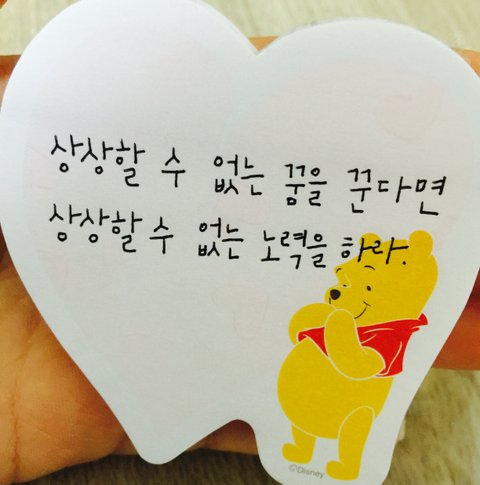 상상할 수 없는 꿈을 꾼다면
상상할 수 없는 노력을 하라.
©Disney